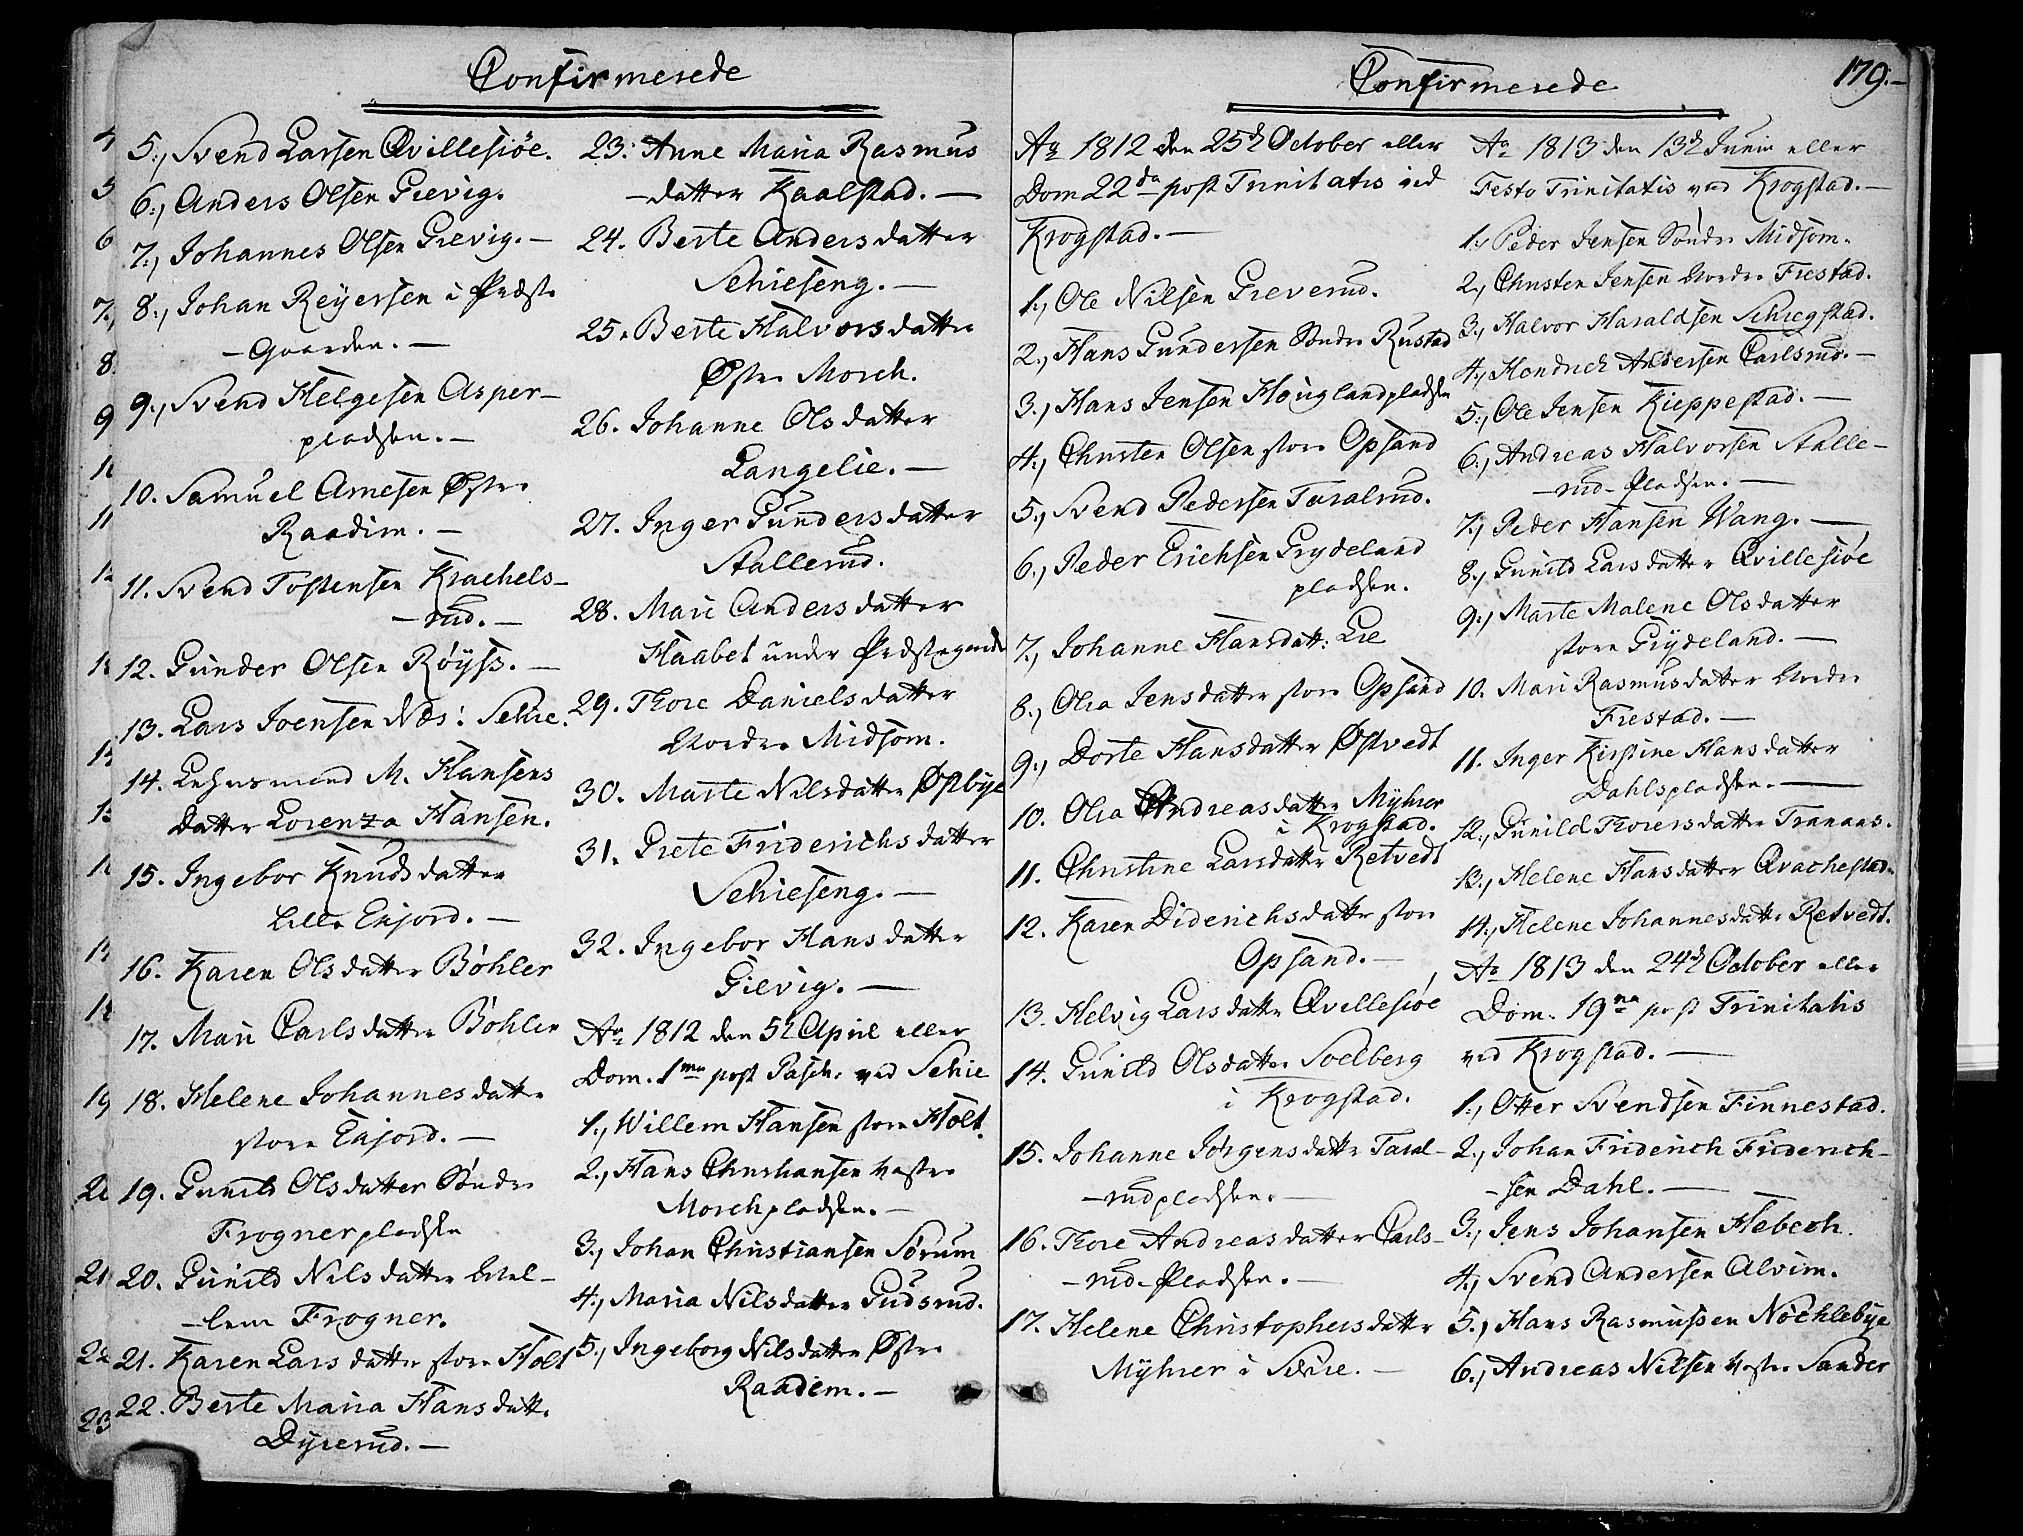 Confirmerede
5., Svend Larsen Qvillesiöe.
6., Anders Olsen Grevig.
7., Johannes Olsen Grevig. —
8., Johan Reÿersen i Præste
- Gaarden. —
9., Svend Helgesen Asper-
pladsen. —
10. Samuel Arnesen Østre
Raadim. —
11. Svend Tostensen Krachels-
- rud. —
12. Gunder Olsen Röÿss. —
13. Lars Joensen Næs i Schie.
14. Lehnsmand M. Hansens
Datter Lorenza Hansen.
15. Ingebor Knudsdatter
Lille Enjord. —
16. Karen Olsdatter Böhler
17. Mari Carlsdatter Böhler
18. Helene Johannesdatter
store Enjord. —
19. Gunild Olsdatter Söndre
Frognerpladsen
20. Gunild Nilsdatter Mel-
- lem Frogner.
21. Karen Larsdatter store Holt
22. Berte Maria Hansdatt.
Dÿrerud. —
23. Anne Maria Rasmus
- datter Kaalstad. —
24. Berte Andersdatter
Schieseng. —
25. Berte Halvorsdatter
Østre Morch.
26. Johanne Olsdatter
Langelie. —
27. Inger Gundersdatter
Stallerud.
28. Mari Andersdatter
Haabet under Præstegaarde
29. Thore Danielsdatter
Nordre Midsom.
30. Marte Nilsdatter Østbÿe
31. Grete Friderichsdatter
Schieseng. —
32. Ingebor Hansdatter
Grevig. —
Ao 1812 den 5te April eller
Dom. 1ma post Pasch. ved Schie
1., Willem Hansen store Holt.
2., Hans Christiansen Vestre
Morchpladsen. —
3., Johan Christiansen Sørum
4., Maria Nilsdatter Gudsrud.
5., Ingeborg Nilsdatter Østre
Raadem. —
Confirmerede
179. —
Ao 1812 den 25de October eller
Dom 22da post Trinitatis ved
Krogstad. —
1., Ole Nilsen Greverud.
2., Hans Gundersen Söndre Rustad
3., Hans Jensen Houglandpladsen
4., Christen Olsen store Opsand
5., Svend Pedersen Taralrud.
6., Peder Erichsen Grydeland
pladsen.
7., Johanne Hansdatt: Lie
8., Olia Jensdatter store Opsand
9., Dorte Hansdatter Østvedt
10. Olia Andreasdatter Mÿhrer
i Krogstad.
11. Christine Larsdatter Retvedt
12. Karen Diderichsdatter store
Opsand. —
13. Helvig Larsdatter Qvillesiöe
14. Gunild Olsdatter Soelberg
i Krogstad.
15. Johanne Jörgensdatter Taral-
- rudpladsen. —
16. Thore Andreasdatter Carls-
- rud-Pladsen. —
17. Helene Christophersdatter
Mÿhrer i Schie. —
Ao 1813 den 13de Junii eller
Festo Trinitatis ved Krogstad. —
1., Peder Jensen Söndre Midsom.
2., Christen Jensen Nordre Frestad.
3., Halvor Haraldsen Schiegstad.
4., Hendrich Andersen Carlsrud. —
5., Ole Jensen Kieppestad. —
6., Andreas Halvorsen Stalle-
- rud-Pladsen. —
7., Peder Hansen Wang. —
8., Gunild Larsdatter Qvillesiöe
9., Marte Malene Olsdatter
store Grÿdeland. —
10. Mari Rasmusdatter Nordre
Frestad. —
11. Inger Kirstine Hansdatter
Dahlspladsen. —
12., Gunild Thorersdatter Tranaas.
13., Helene Hansdatter Qvachestad.
14., Helene Johannesdatter Retvedt.
Ao 1813 den 24de October eller
Dom. 19na post Trinitatis
ved Krogstad. —
1., Otter Svendsen Finnestad.
2., Johan Friderich Friderich-
- sen Dahl. —
3., Jens Johansen Hebech.
4., Svend Andersen Alvim.
5., Hans Rasmussen Nöchlebÿe
6., Andreas Nilsen Vestre Sander